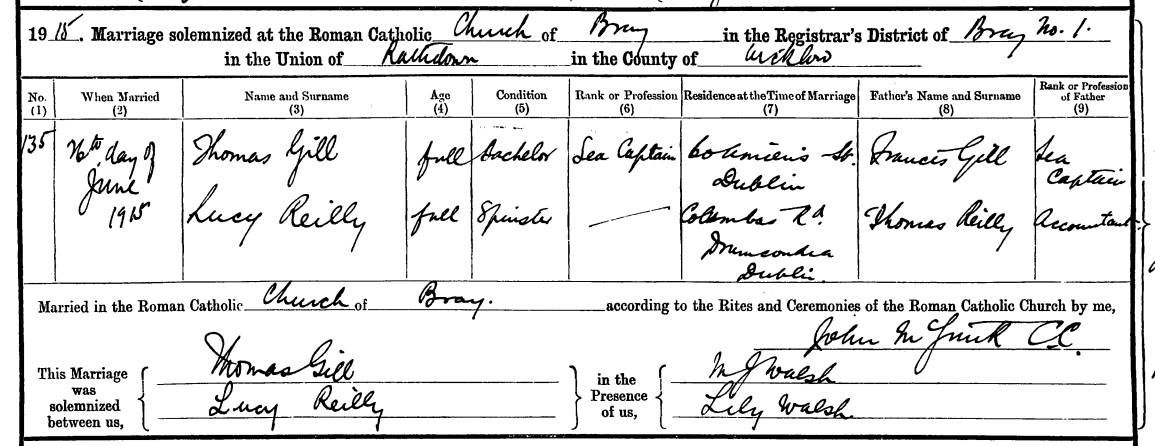 19 15. Marriage solemnized at the Roman Catholic Church of Bray in the Registrar's District of Bray No. 1.
in the Union of Rathdown in the County of Wicklow
No. (1) When Married (2) Name and Surname (3) Age (4) Condition (5) Rank or Profession (6) Residence at the Time of Marriage (7) Father's Name and Surname (8) Rank or Profession of Father (9)
135 26th day of June 1915 Thomas Gill full Bachelor Sea Captain St. Dublin Francis Gill Sea Captain
Lucy Reilly full Spinster — Columbas Rd. Drumcondra Dublin Thomas Reilly Accountant
Married in the Roman Catholic Church of Bray. according to the Rites and Ceremonies of the Roman Catholic Church by me,
John C.C.
This Marriage was solemnized between us, Thomas Gill in the Presence of us, M J Walsh
Lucy Reilly Lily Walsh